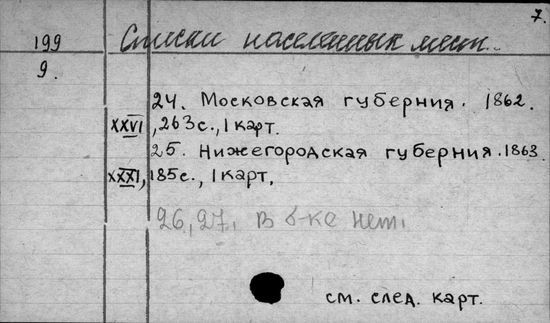 7.
199 Списки населенных мест.
9.
24. Московская губерния. 1862.
XXVI, 263с., 1 карт.
25. Нижегородская губерния. 1863
XXXI, 185с., 1 карт.
26, 27. в б-ке нет.
см. след. карт.